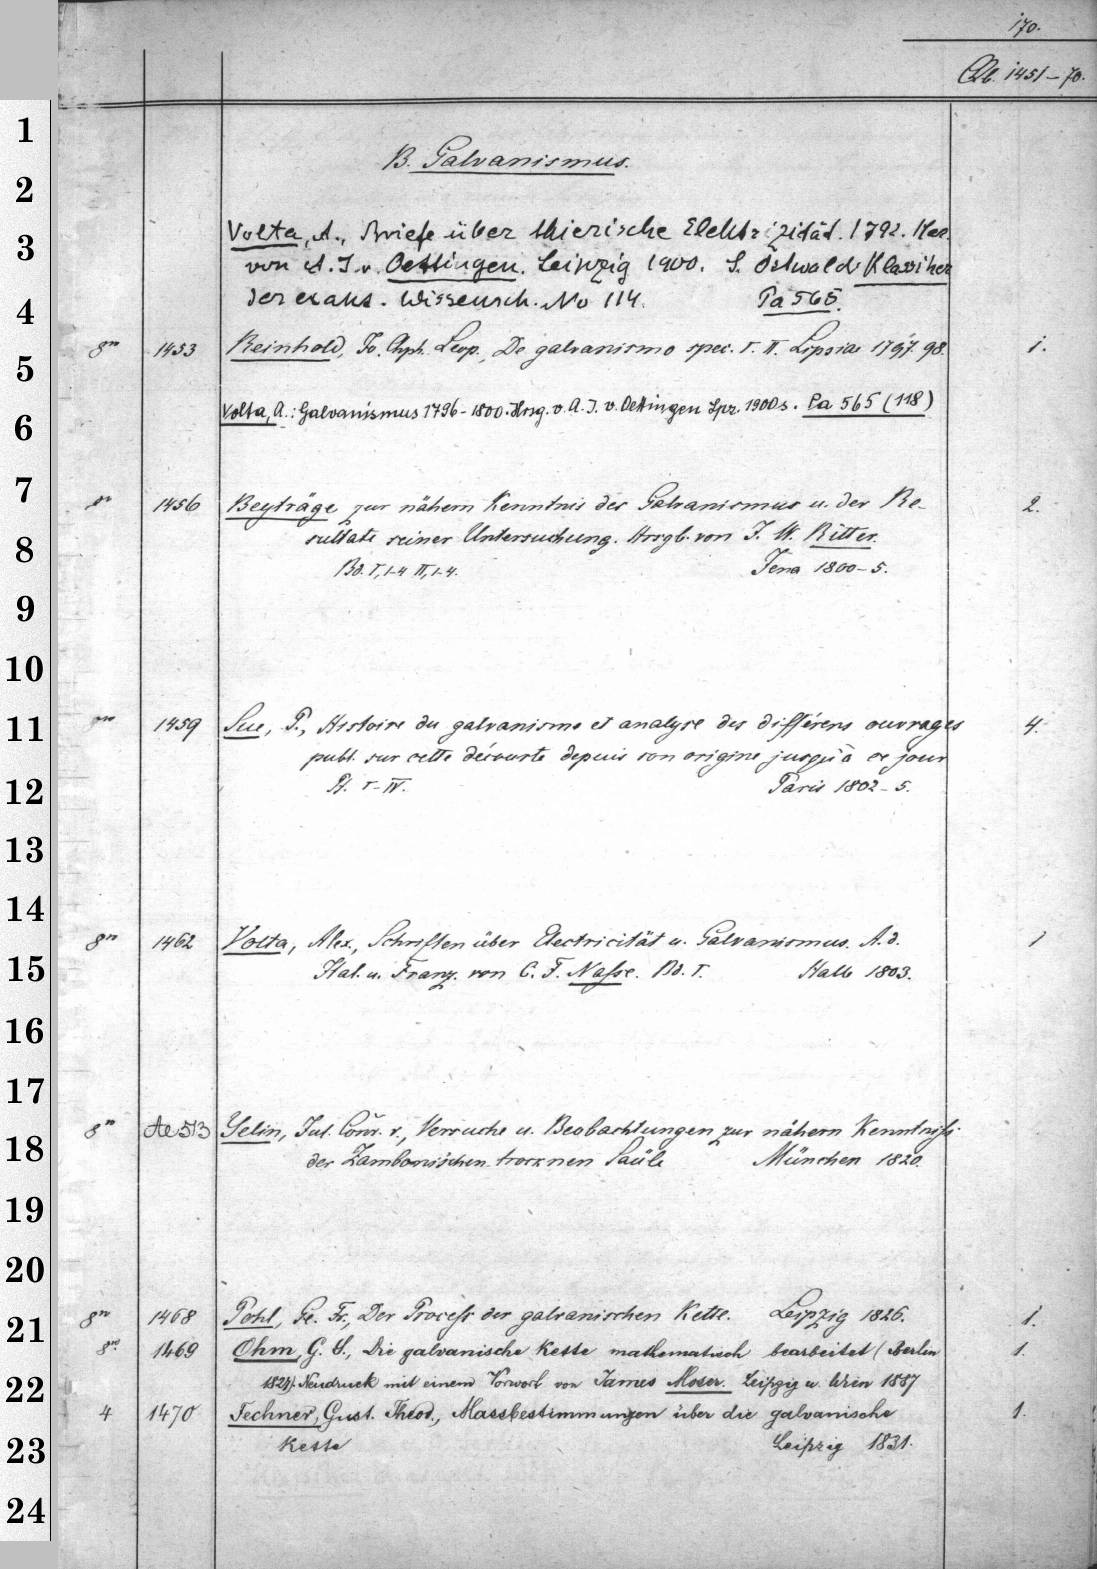 170.
1451-70.
B. Galvanismus.
Volta, A., Briefe über thierische Elektrizität. 1792. Her.
von A. J. v. Oettingen. Leipzig 1900. S. Ostwald Klassiker
der exakt. Wissensch. No 114. Pa 565.
8vo 1453 Reinhold, Jo. Chph. Leop., De galvanismo spec. I. II. Lipsiae 1797. 98. 1.
Volta, A.: Galvanismus 1796-1800. Hrsg. v. A. J. v. Oettingen Lpz. 1900 s. Pa 565 (118)
1456 Beyträge zur nähern Kenntnis des Galvanismus u. der Re- 2.
sultate seiner Untersuchung. Hrsgb. von J. W. Ritter.
Bd. I, 1-4 II, 1-4. Jena 1800-5.
1459 Sue, P., Histoire du galvanisme et analyse des différens ouvrages 4.
publ. sur cette découverte depuis son origine jusqu'à ce jour
Pt. I-IV. Paris 1802-5.
8vo 1462 Volta, Alex., Schriften über Electricität u. Galvanismus. A. d. 1
Ital. u. Franz. von C. F. Nasse. Bd. I. Halle 1803.
8vo Ae 513 Yelin, Jul. Conr. v., Versuche u. Beobachtungen zur nähern Kenntniss
der Zambonischen trocknen Säule München 1820.
8vo 1468 Pohl, Ge. Fr., Der Process der galvanischen Kette. Leipzig 1826. 1.
8vo 1469 Ohm, G. S., Die galvanische Kette mathematisch bearbeitet (Berlin 1.
1827) Neudruck mit einem Vorwort von James Moser. Leipzig u. Wien 1887
4 1470 Fechner, Gust. Theod., Massbestimmungen über die galvanische 1.
Kette Leipzig 1831.
1
2
3
4
5
6
7
8
9
10
11
12
13
14
15
16
17
18
19
20
21
22
23
24